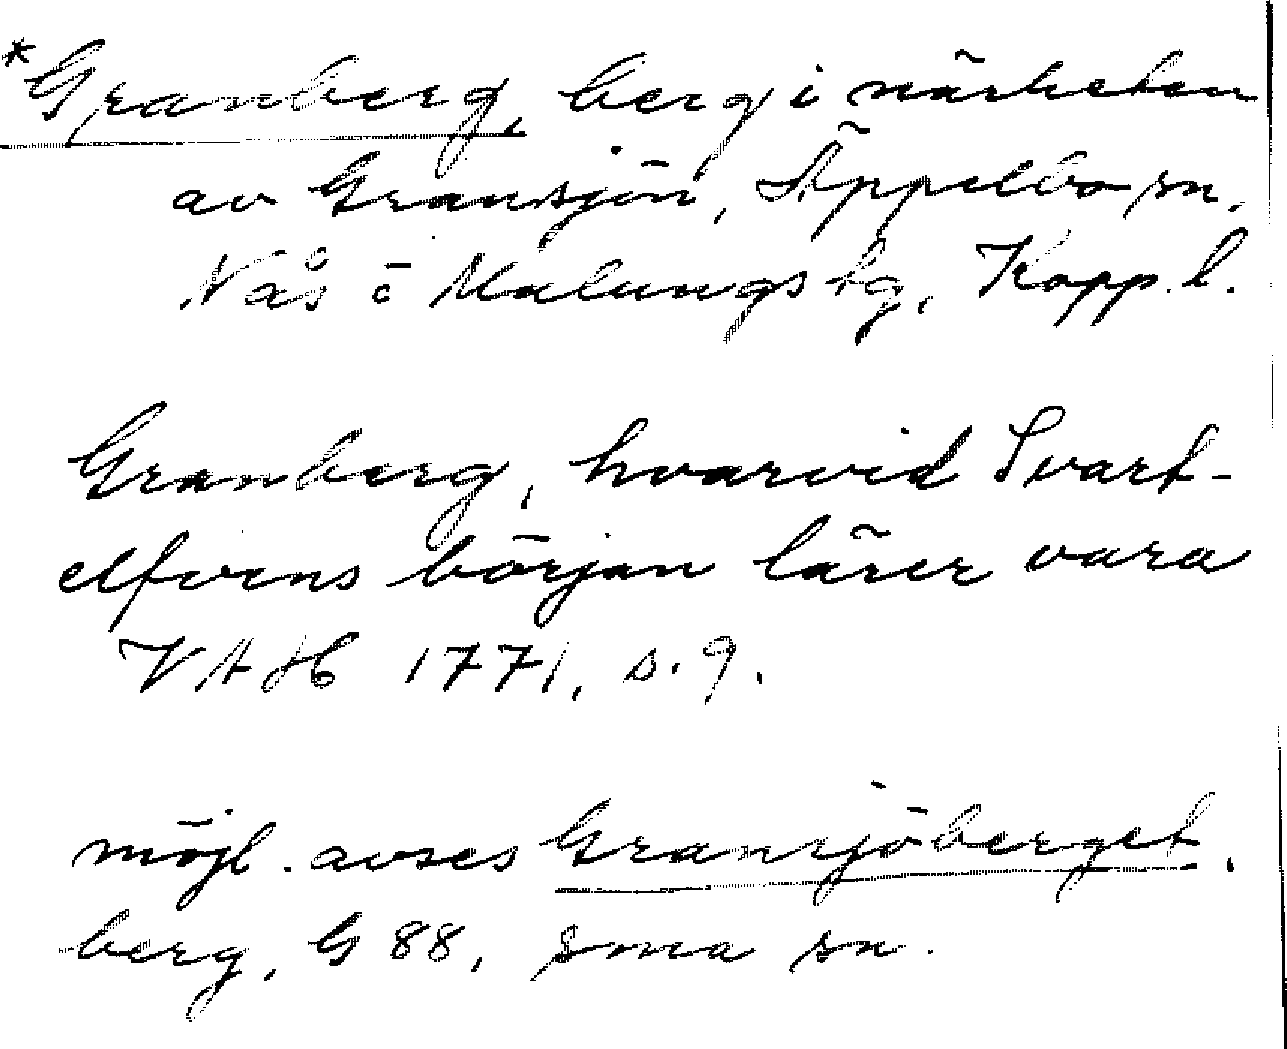 *Granberg, berg i närheten
av Gransjön, Äppelbo sn,
Nås o Malungs tg, Kopp. l.
Granberg, hvarvid Svart-
elfvens början lärer vara
VAH 1771, s. 9.
möjl. avses Gransjöberget,
berg, G 88, sma sn.